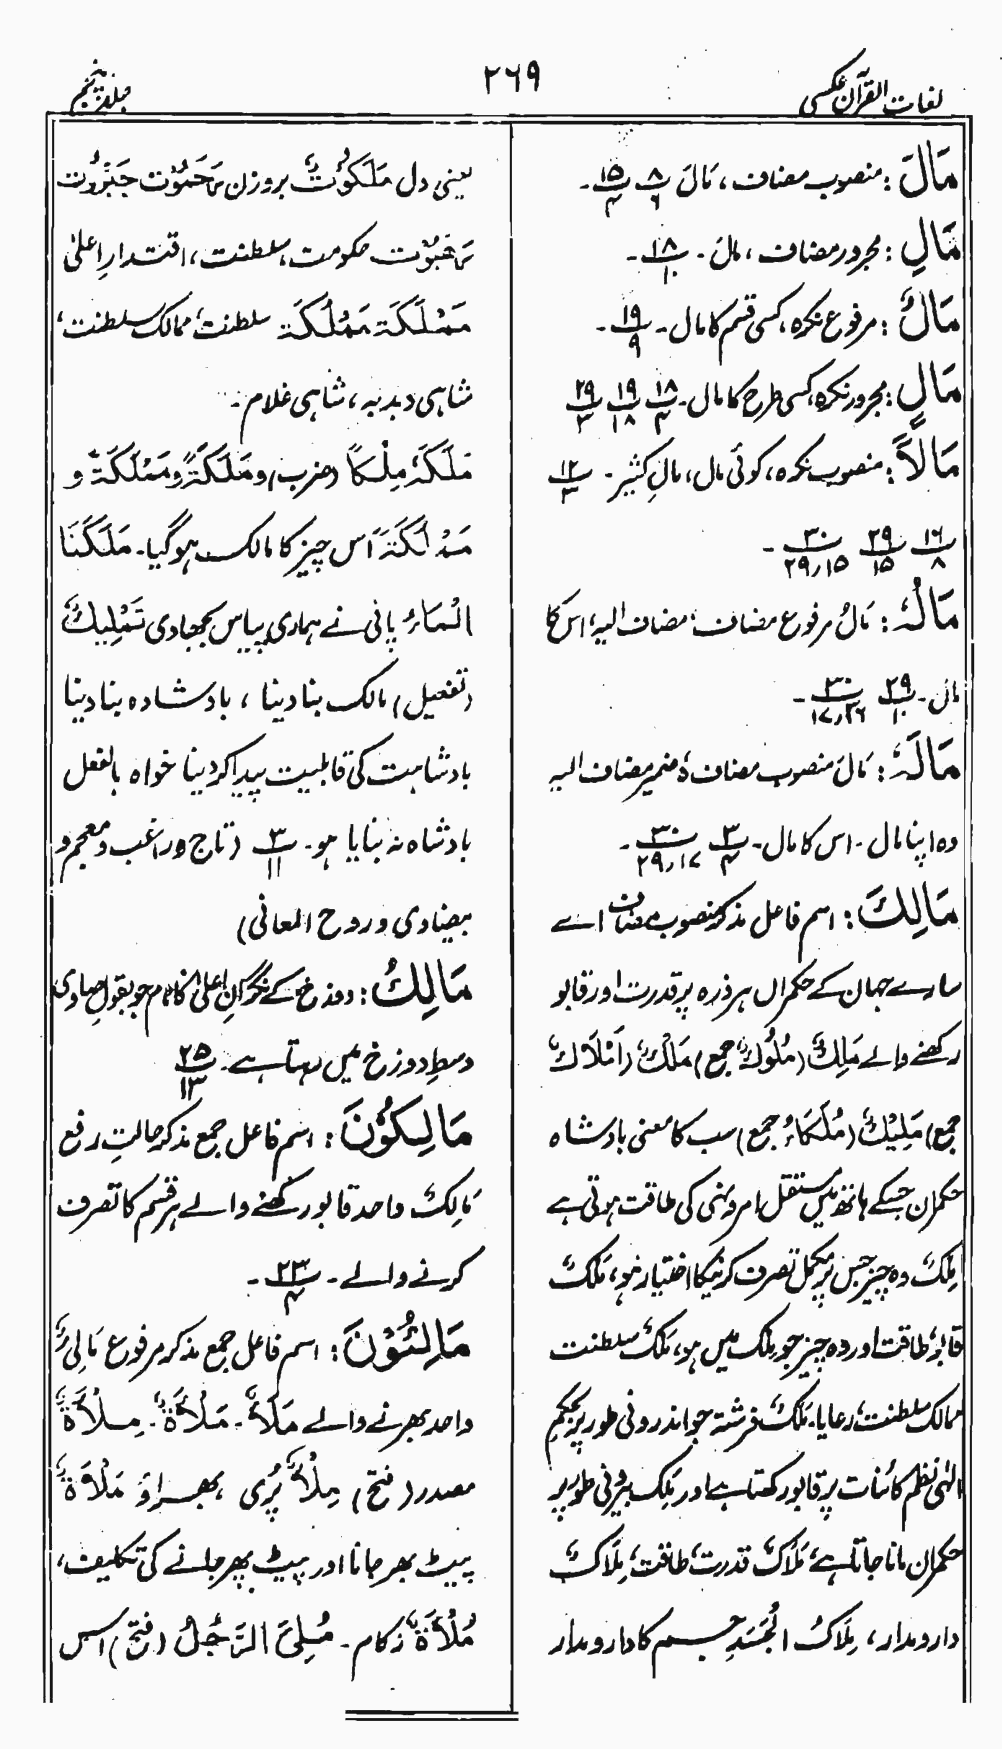 لغات القرآن عکسی
۲۶۹
جلد پنجم
مَالَ : منصوب مضاف، مَالَ ۸/۶ ۱۵/۴ ۔
مَالِ : مجرور مضاف، مالِ ۔ ۱۸/۱۰ ۔
مَالٌ : مرفوع نکرہ، کسی قسم کا مال ۔ ۱۹/۹ ۔
مَالٍ : مجرور نکرہ، کسی طرح کا مال ۔ ۱۸/۴ ۱۹/۱۸ ۲۹/۳
مَالًا : منصوب نکرہ، کوئی مال، مالِ کثیر ۔ ۱۲/۳
۱۶/۸ ۲۹/۱۵ ۳۰/۱۵،۲۹ ۔
مَالُہٗ : مَالُ مرفوع مضاف، ہٗ مضاف الیہ، اس کا
مال ۔ ۲۹/۱۰ ۳۰/۲۶،۱۷ ۔
مَالَہٗ : مَالَ منصوب مضاف ہٗ ضمیر مضاف الیہ
وہ اپنا مال ۔ اس کا مال ۔ ۳/۴ ۳۰/۱۷،۲۹ ۔
مَالِكَ : اسم فاعل مذکر منصوب مضاف اے
سارے جہان کے حکمراں ہر ذرہ پر قدرت اور قابو
رکھنے والے مَالِكٌ (مُلُوكٌ جمع) مَلْكٌ (اَمْلَاكٌ
جمع) مَلِيْكٌ (مُلَكَاءُ جمع) سب کا معنی بادشاہ
حکمران جسکے ہاتھ میں مستقل امر و نہی کی طاقت ہوتی ہے
مِلْكٌ وہ چیز جس پر مکمل تصرف کرنیکا اختیار ہو، مَلْكٌ
قابو، طاقت اور وہ چیز جو ملک میں ہو، مُلْكٌ سلطنت
ممالک سلطنت، رعایا۔ مَلَكٌ فرشتہ جو اندرونی طور پر بحکم
الٰہی نظم کائنات پر قابو رکھتا ہے اور مَلِكٌ بیرونی طور پر
حکمران مانا جاتا ہے، مَلَاكٌ قدرت، طاقت، مِلَاكٌ
دارومدار، مِلَاكُ الْجَسَدِ جسم کا دارومدار
یعنی دل مَلَكُوْتٌ بروزن رَحَمُوْت جَبَرُوْت
رَهَبُوْت حکومت، سلطنت، اقتدارِ اعلیٰ
مَمْلَكَة مَمْلُكَة سلطنت، ممالک سلطنت،
شاہی دبدبہ، شاہی غلام ۔
مَلَكَهٗ مِلْكًا (ضرب) و مَلَكَةً و مَمْلَكَةً و
مَمْلُكَةً اس چیز کا مالک ہو گیا۔ مَلَكَنَا
الْمَاءُ پانی نے ہماری پیاس بجھا دی تَمْلِيْكٌ
(تفعیل) مالک بنا دینا، بادشاہ بنا دینا
بادشاہت کی قابلیت پیدا کر دینا خواہ بالفعل
بادشاہ نہ بنایا ہو۔ ۳/۱۱ (تاج و راغب و معجم و
بیضاوی و روح المعانی)
مَالِكُ : دوزخ کے نگرانِ اعلیٰ کا نام جو بقول صاوی
وسط دوزخ میں رہتا ہے ۔ ۲۵/۱۳
مَالِكُوْنَ : اسم فاعل جمع مذکر حالتِ رفع
مَالِكٌ واحد قابو رکھنے والے ہر قسم کا تصرف
کرنے والے ۔ ۲۳/۴ ۔
مَالِئُوْنَ : اسم فاعل جمع مذکر مرفوع مَالِئٌ
واحد بھرنے والے مَلَأٌ ۔ مَلْأَةٌ ۔ مِلْأَةٌ
مصدر (فتح) مِلْأٌ پُری، بھراؤ مَلْأَةٌ
پیٹ بھر جانا اور پیٹ بھر جانے کی تکلیف،
مُلْأَةٌ زکام ۔ مُلِئَ الرَّجُلُ (فتح) اس